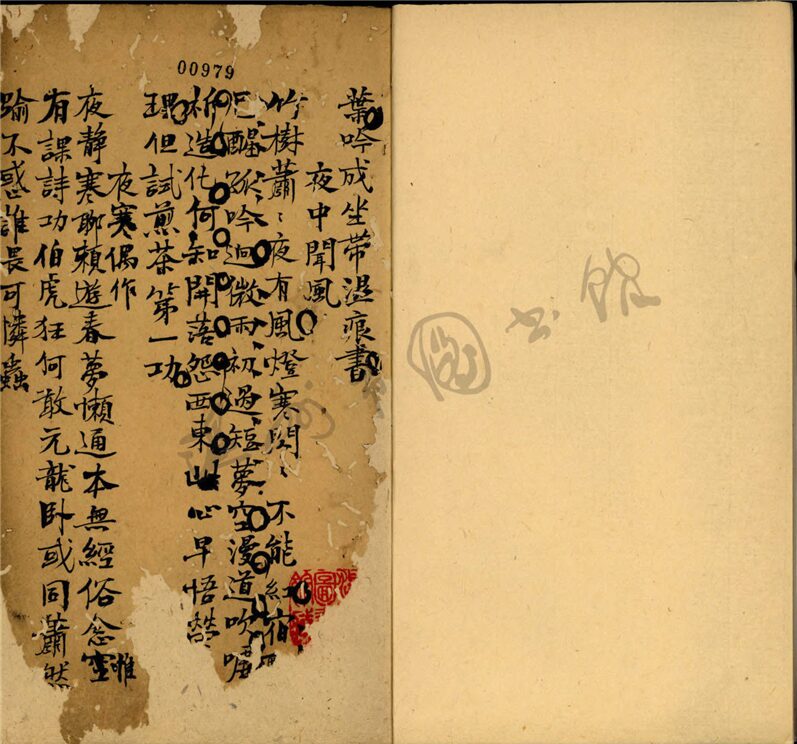 00979
葉吟成坐帶濕痕書
夜中聞風
竹樹蕭〻夜有風燈寒閃〻不能紅宿
醒孤吟逈微雨初過短夢空漫道吹噓
造化何知開落怨西東此心早悟
理但試煎茶第一功
夜寒偶作
夜静寒聊賴遊春夢懶通本無經俗念空惟
有課詩功伯虎狂何敢元龍卧或同蕭然
踰不惑誰長可憐蟲
圖書館